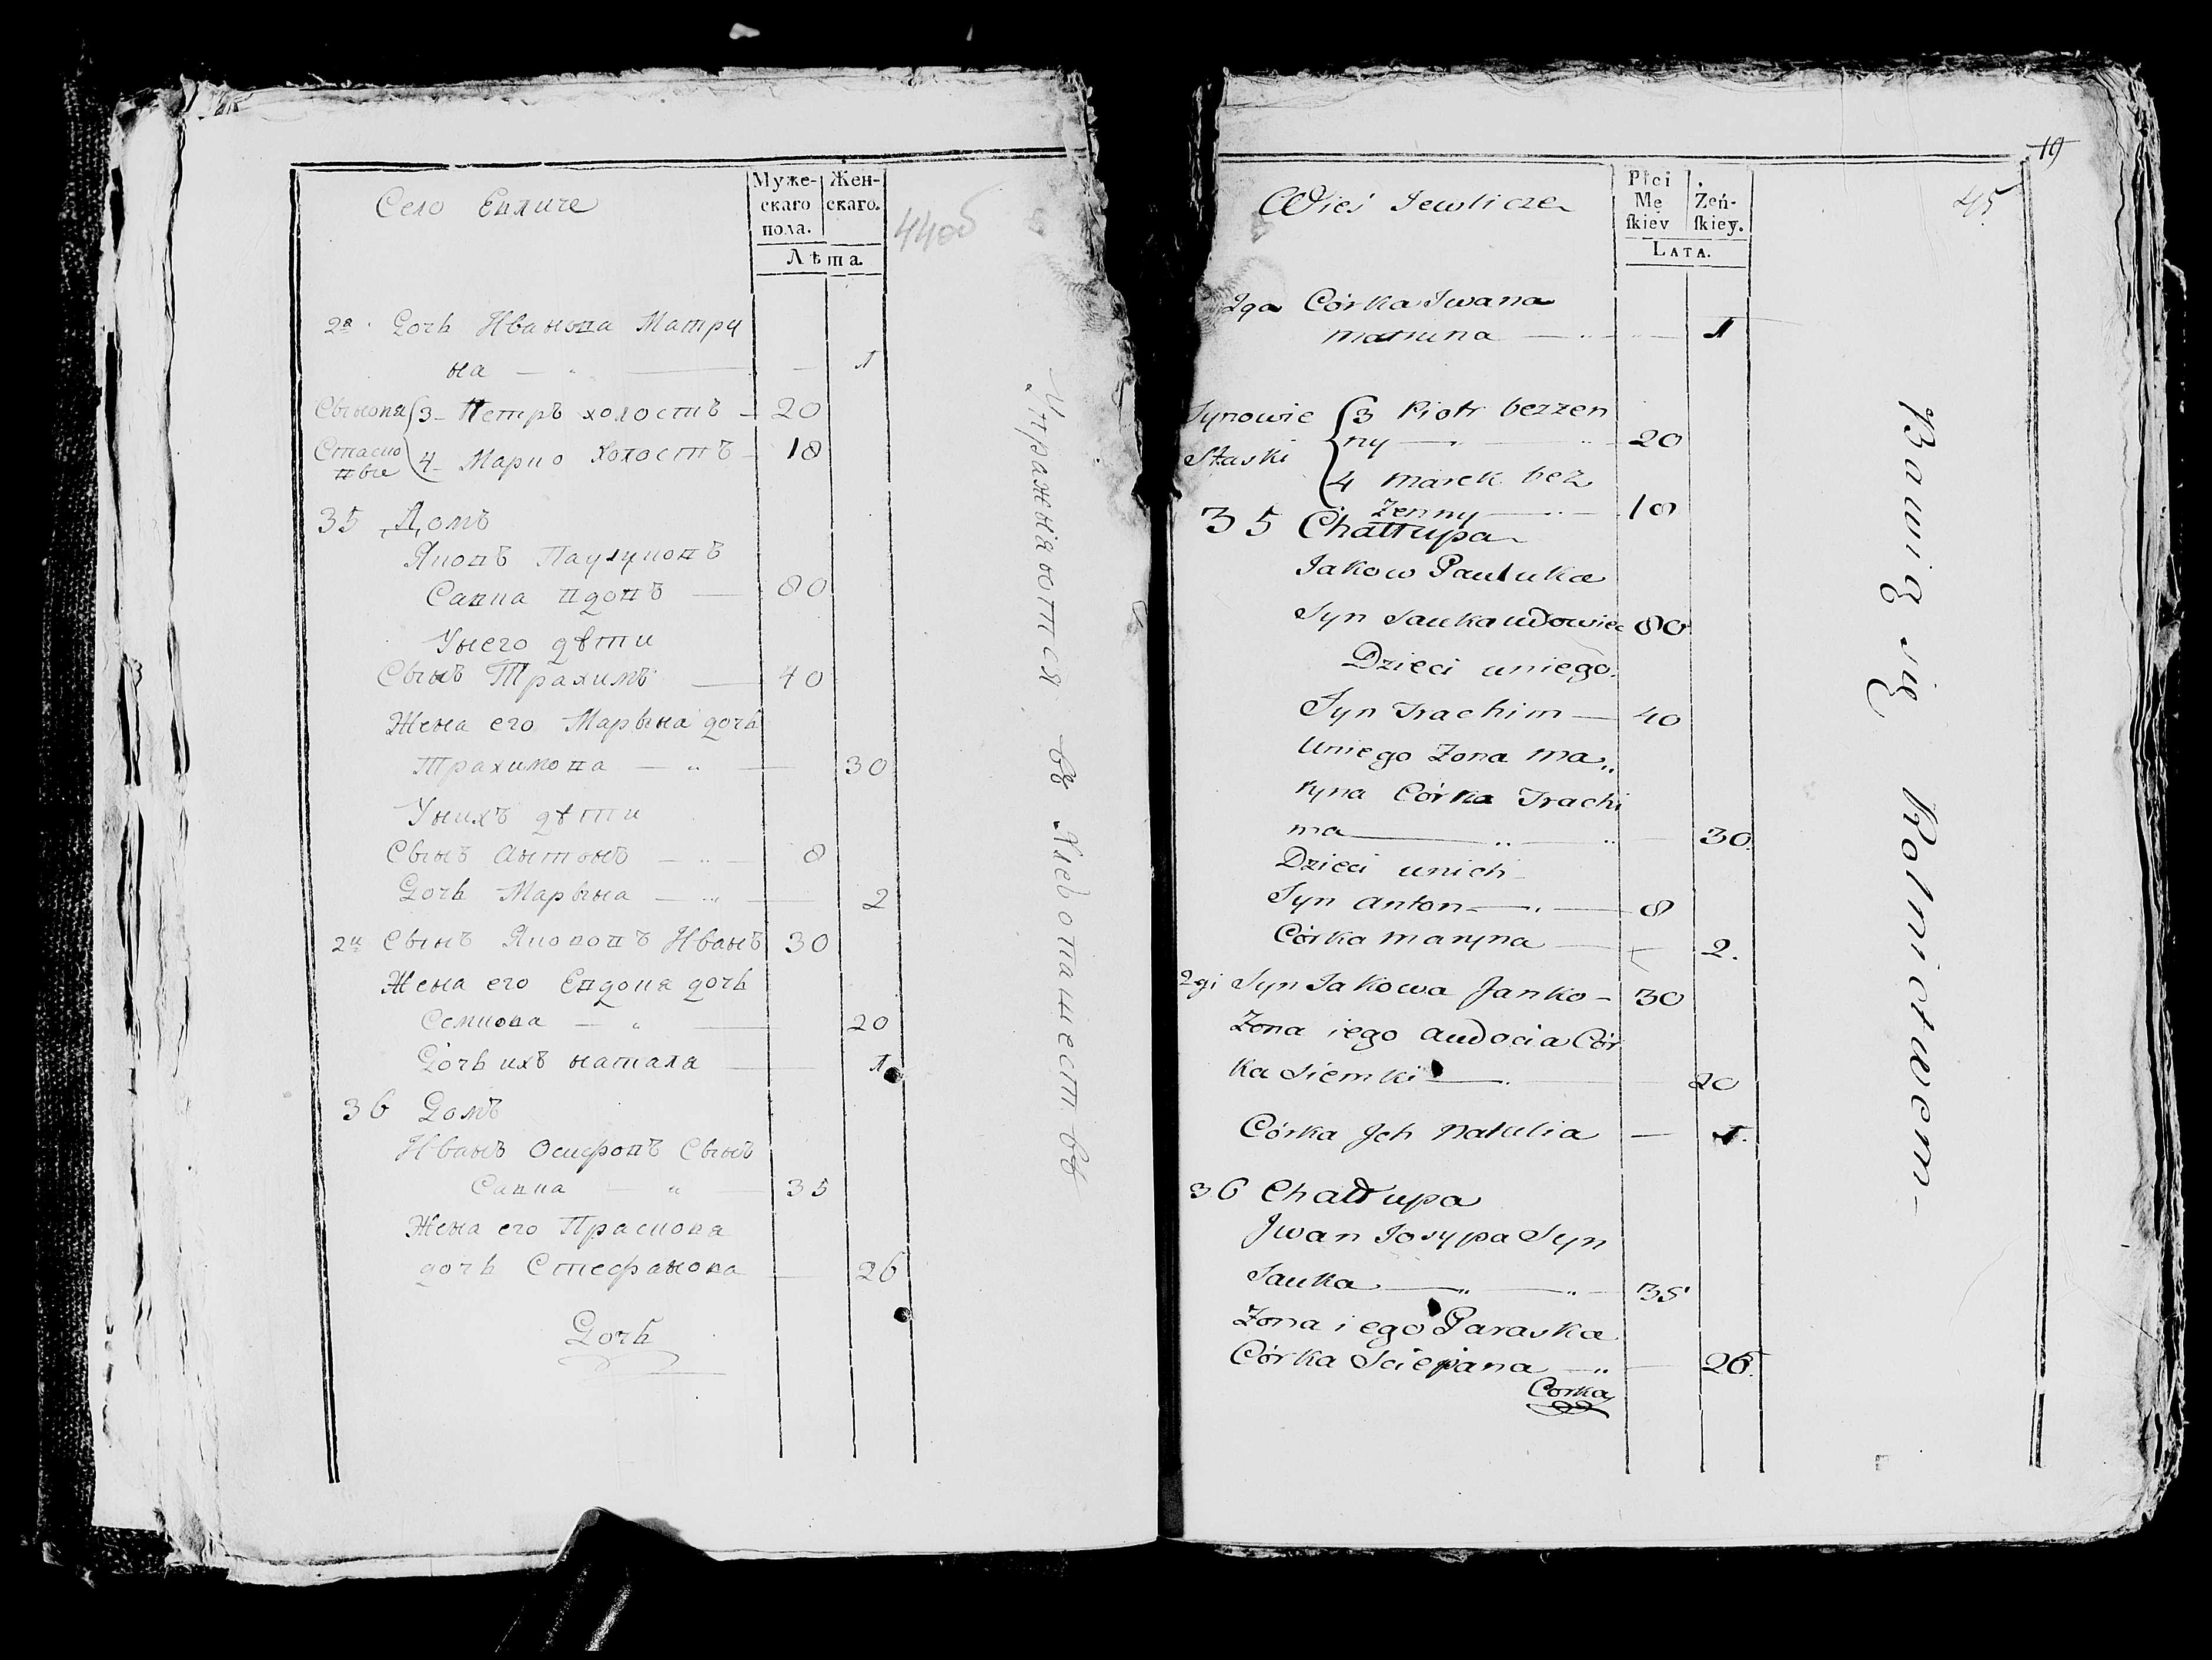 Село Евличе
Муже-
скаго
пола.
Жен-
скаго.
Лѣта.
44об
2я Дочь Иванова Матру
на — 1
Сынове 3 Петръ холостъ — 20
4 Марко холостъ — 18
35 Домъ
Яковъ Паулуковъ
Савка вдовъ — 80
У него дѣти
Сынъ Трахимъ — 40
Жена его Марына дочь
Трахимова — 30
У нихъ дѣти
Сынъ Антонъ — 8
Дочь Марына — 2
2й Сынъ Якововъ Иванъ 30
Жена его Евдокия дочь
Семкова — 20
Дочь ихъ Наталя — 1
36 Домъ
Иванъ Осифовъ Сынъ
Савка — 35
Жена его Праскова
дочь Стефанова — 26
Дочь
Упражняются въ Хлебопашествѣ
Wieś Jewlicze
Płci
Mę
skiey
Żeń-
skiey.
LATA.
19
45
2ga Córka Iwana
Matruna — 1
Synowie
Staśki
3 Piotr bezżen
ny — 20
4 Marek bez
żenny — 18
35 Chałłupa
Jakow Pauluka
Syn Sauka udowiec 80
Dzieci uniego
Syn Trachim — 40
Uniego Żona Ma„
ryna Córka Trachi
ma — 30.
Dzieci unich
Syn Anton — 8
Córka Maryna — 2.
2gi Syn Jakowa Janko — 30
Żona iego Audocia Cór
ka Siemki — 20
Córka Jch Natalia — 1.
36 Chałłupa
Jwan Josypa Syn
Sauka — 35
Żona iego Paraska
Córka Sciepana — 26.
Corka
Bawią się Rolnictwem